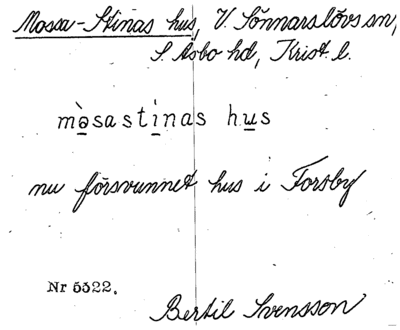 Mossa-Stinas hus, V. Sönnarslövs sn,
S. Åsbo hd, Krist. l.
mə̀sastinas hus
nu försvunnet hus i Forsby
Nr 5522.
Bertil Svensson